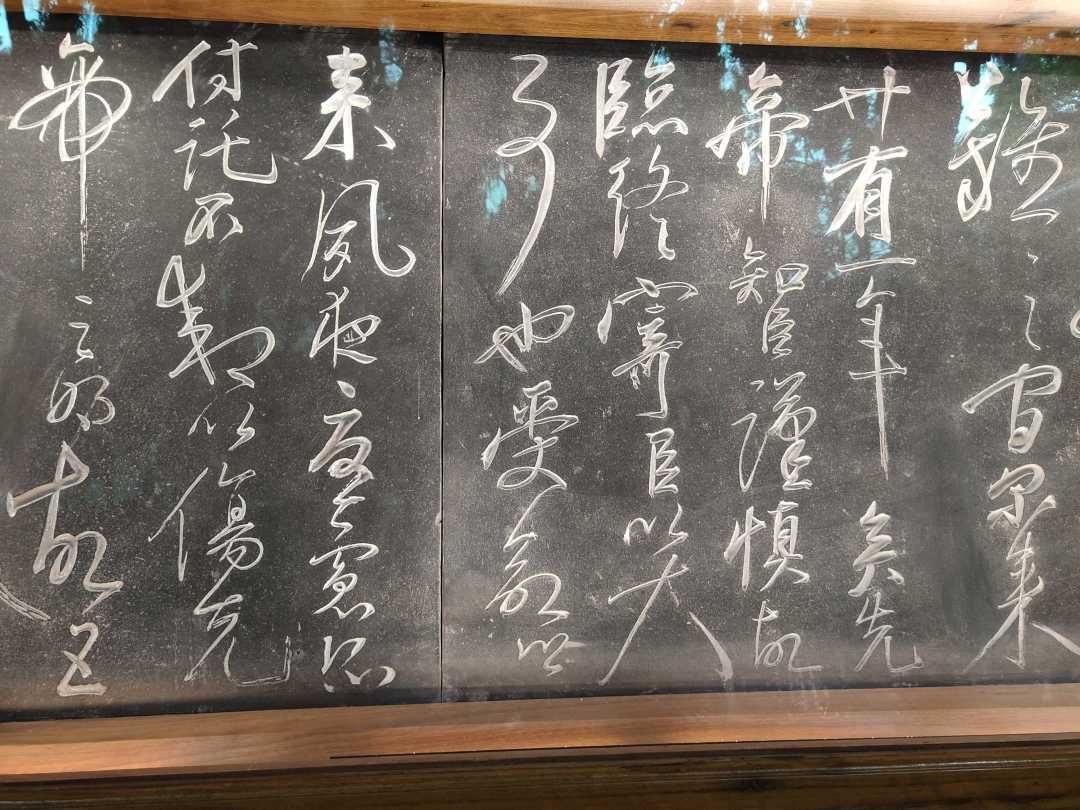 難之間爾来
廿有一年矣先
帝知臣謹慎故
臨終寄臣以大
事也受命以
来夙夜憂慮恐
付託不効以傷先
帝之明故五